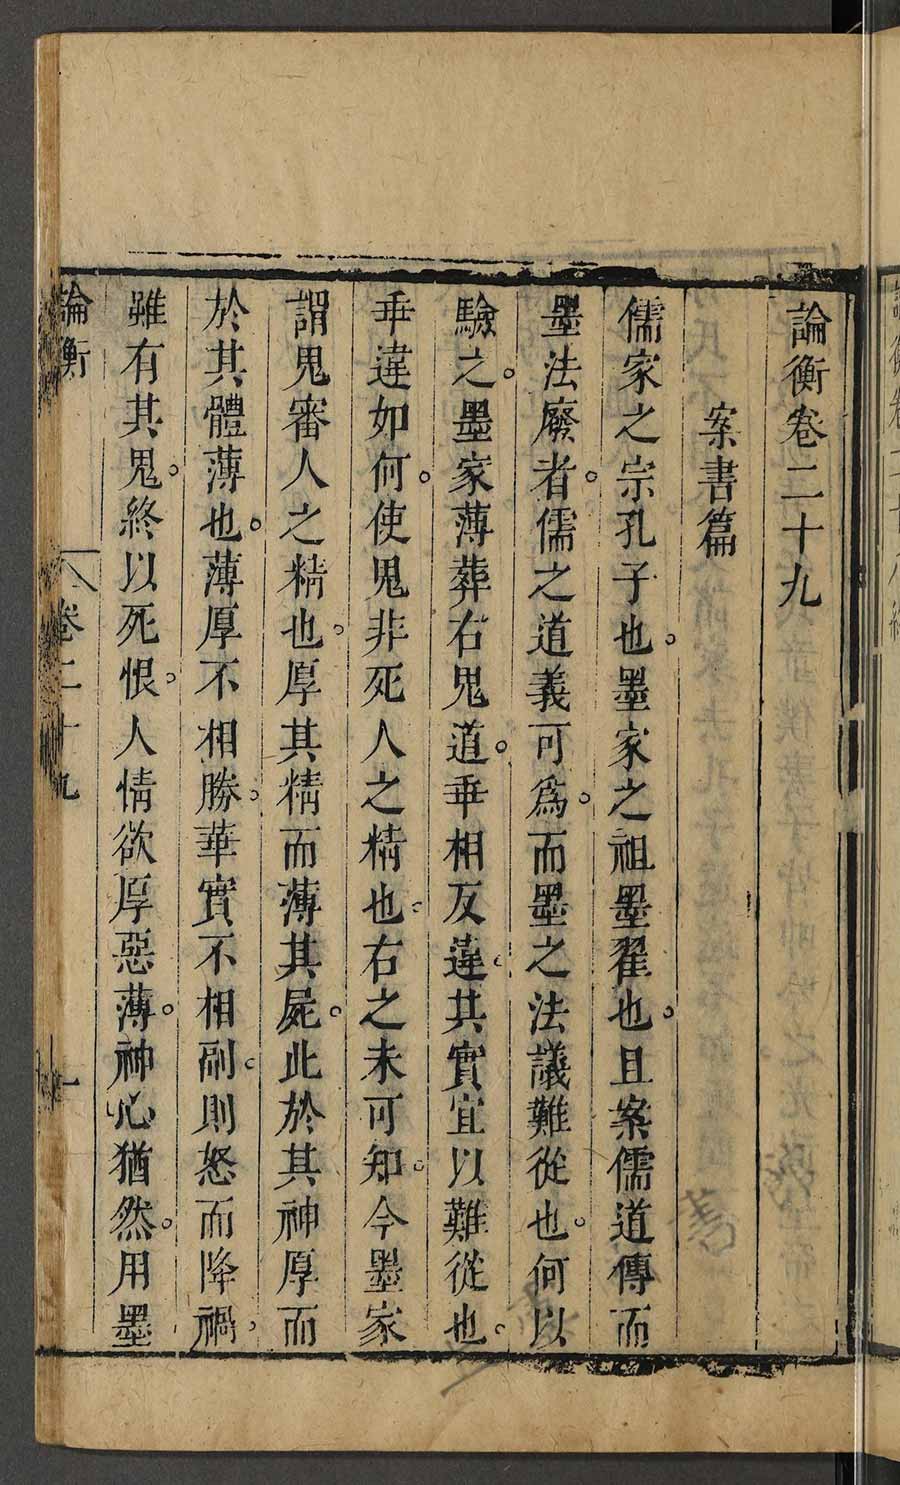 論衡卷二十九
案書篇
儒家之宗孔子也。墨家之祖墨翟也。且案儒道傳而
墨法廢者。儒之道義可爲。而墨之法議難從也。何以
驗之。墨家薄葬右鬼。道乖相反違。其實宜以難從也。
乖違如何。使鬼非死人之精也。右之未可知。今墨家
謂鬼審人之精也。厚其精而薄其屍。此於其神厚而
於其體薄也。薄厚不相勝。華實不相副。則怒而降禍。
雖有其鬼。終以死恨。人情欲厚惡薄。神心猶然。用墨
論衡 卷二十九 一